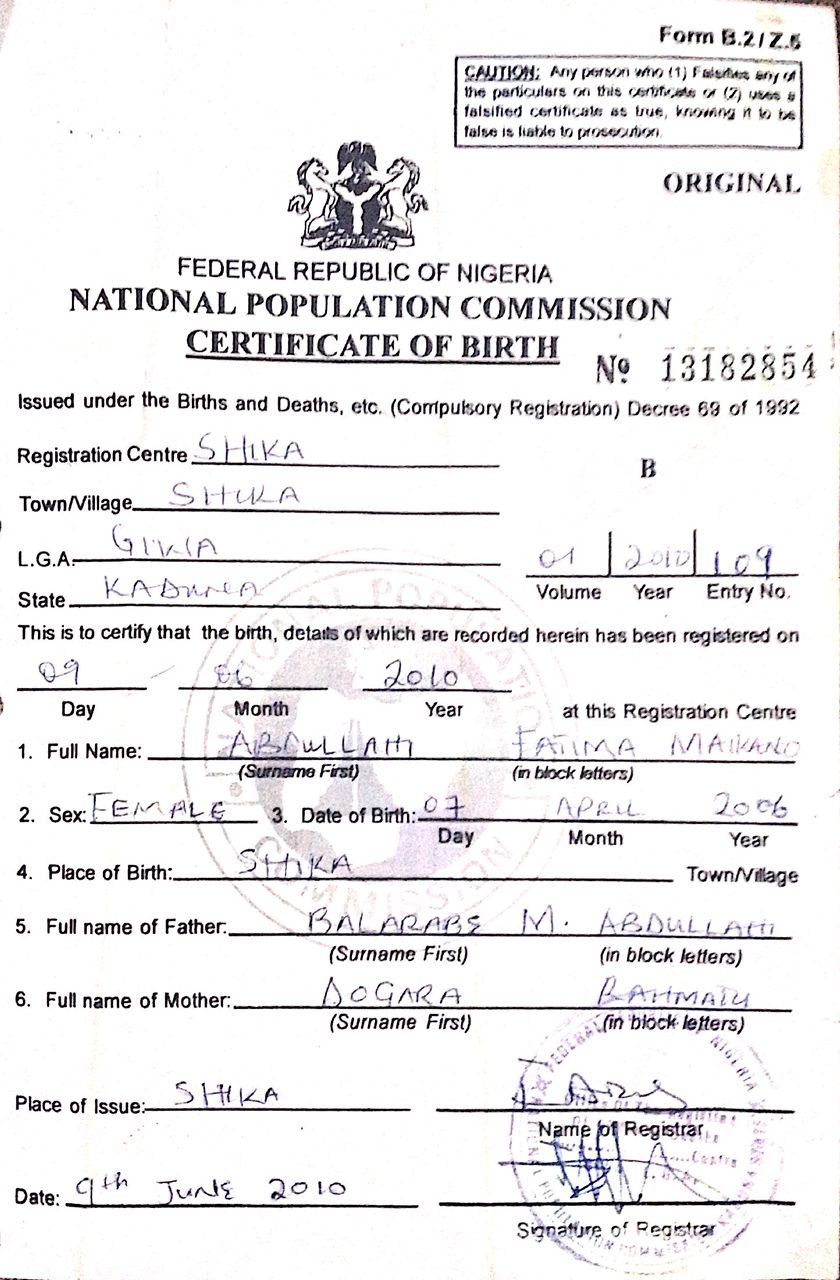 Form B.2/Z.5
CAUTION: Any person who (1) Falsifies any of
the particulars on this certificate or (2) uses a
falsified certificate as true, knowing it to be
false is liable to prosecution.
ORIGINAL
FEDERAL REPUBLIC OF NIGERIA
NATIONAL POPULATION COMMISSION
CERTIFICATE OF BIRTH
Nº 13182854
Issued under the Births and Deaths, etc. (Compulsory Registration) Decree 69 of 1992
Registration Centre SHIKA
B
Town/Village SHIKA
L.G.A. GIWA
01 2010 109
Volume Year Entry No.
State KADUNA
This is to certify that the birth, details of which are recorded herein has been registered on
09 06 2010
Day Month Year at this Registration Centre
1. Full Name: ABDULLAHI FATIMA MAIKANO
(Surname First) (in block letters)
2. Sex: FEMALE 3. Date of Birth: 07 APRIL 2006
Day Month Year
4. Place of Birth: SHIKA Town/Village
5. Full name of Father: BALARABE M. ABDULLAHI
(Surname First) (in block letters)
6. Full name of Mother: DOGARA RAHMATU
(Surname First) (in block letters)
Place of Issue: SHIKA
Name of Registrar
Date: 9th JUNE 2010
Signature of Registrar
NATIONAL POPULATION COMMISSION